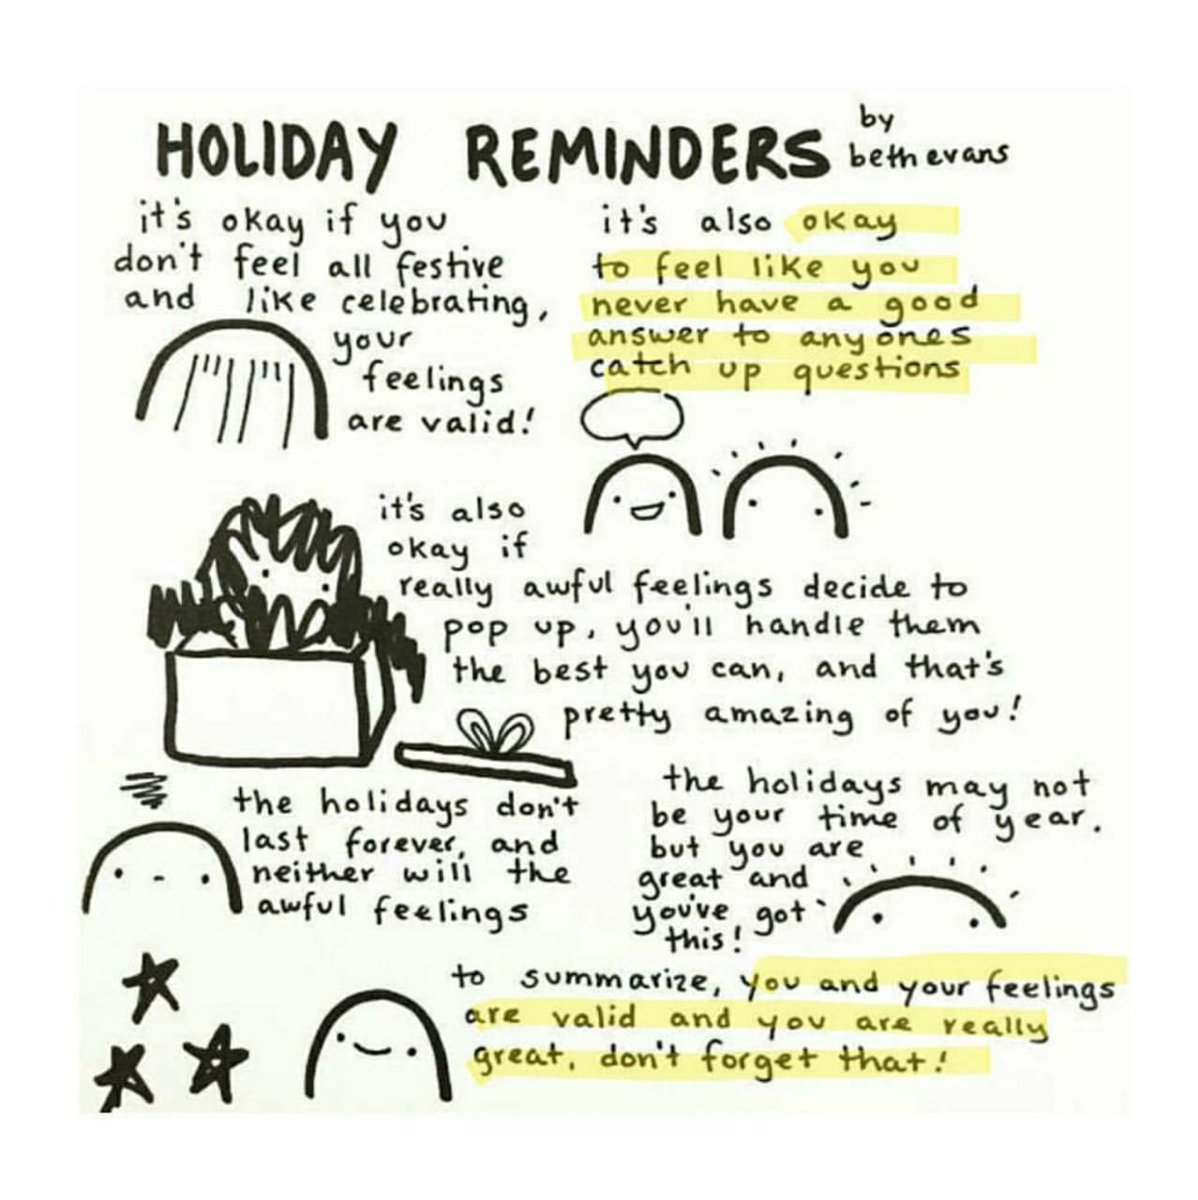 HOLIDAY REMINDERS
by
beth evans
it's okay if you
don't feel all festive
and like celebrating,
your
feelings
are valid!
it's also okay
to feel like you
never have a good
answer to any ones
catch up questions
it's also
okay if
really awful feelings decide to
pop up, you'll handle them
the best you can, and that's
pretty amazing of you!
the holidays don't
last forever, and
neither will the
awful feelings
the holidays may not
be your time of year,
but you are
great and
you've got
this!
to summarize, you and your feelings
are valid and you are really
great, don't forget that!